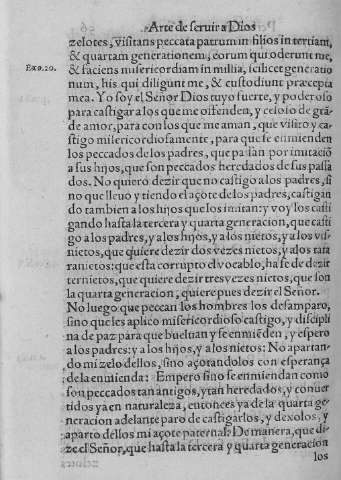 Arte de seruir a Dios
zelotes, visitans peccata patrum in filios in tertiam,
& quartam generationem, eorum qui oderunt me,
Exo.20. & faciens misericordiam in millia, scilicet generatio
num, his qui diligunt me, & custodiunt præcepta
mea. Yo soy el Señor Dios tuyo fuerte, y poderoso
para castigar a los que me ofenden, y celoso de grã-
de amor, para con los que me aman, que visito y ca-
stigo misericordiosamente, para que se enmienden
los peccados de los padres, que passan por imitaciõ
a sus hijos, que son peccados heredados de sus passa
dos. No quiero dezir que no castigo a los padres, si
no que lleuo y tiendo el açote de los padres, castigan
do tambien a los hijos que los imitan: y voy los casti
gando hasta la tercera y quarta generacion, que casti
go a los padres, y a los hijos, y a los nietos, y a los vis-
nietos, que quiere dezir dos vezes nietos, y a los tata
ranietos: que esta corrupto el vocablo, ha se de dezir
ternietos, que quiere dezir tres vezes nietos, que son
la quarta generacion, quiere pues dezir el Señor.
No luego que peccan los hombres los desamparo,
sino que les aplico misericordioso castigo, y disciplí
na de paz para que bueluan y se enmiẽden, y espero
a los padres: y a los hijos, y a los nietos: No apartan-
do mi zelo dellos, sino açotandolos con esperança
de la enmienda: Empero si no se enmiendan como
son peccados tan antigos, y tan heredados, y conuer
tidos ya en naturaleza, entonces ya de la quarta ge-
neracion adelante paro de castigarlos, y dexolos, y
aparto dellos mi açote paternal: De manera, que di-
ze el Señor, que hasta la tercera y quarta generacion
los